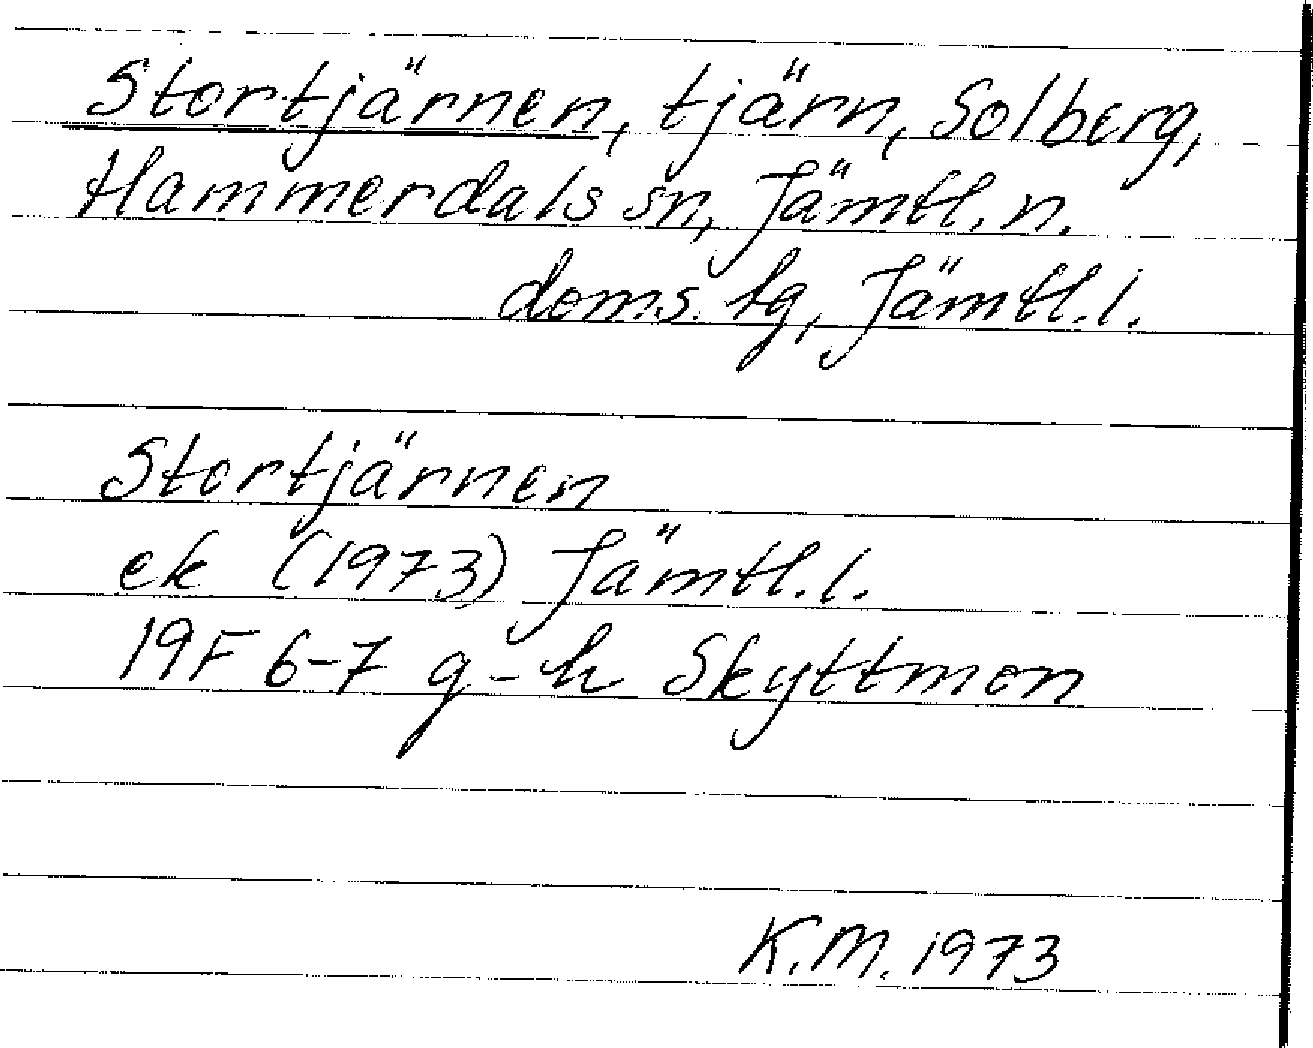 Stortjärnen, tjärn, Solberg,
Hammerdals sn, Jämtl. n.
doms. tg, Jämtl. l.
Stortjärnen
ek (1973) Jämtl. l.
19F 6-7 g-h Skyttmon
K.M. 1973